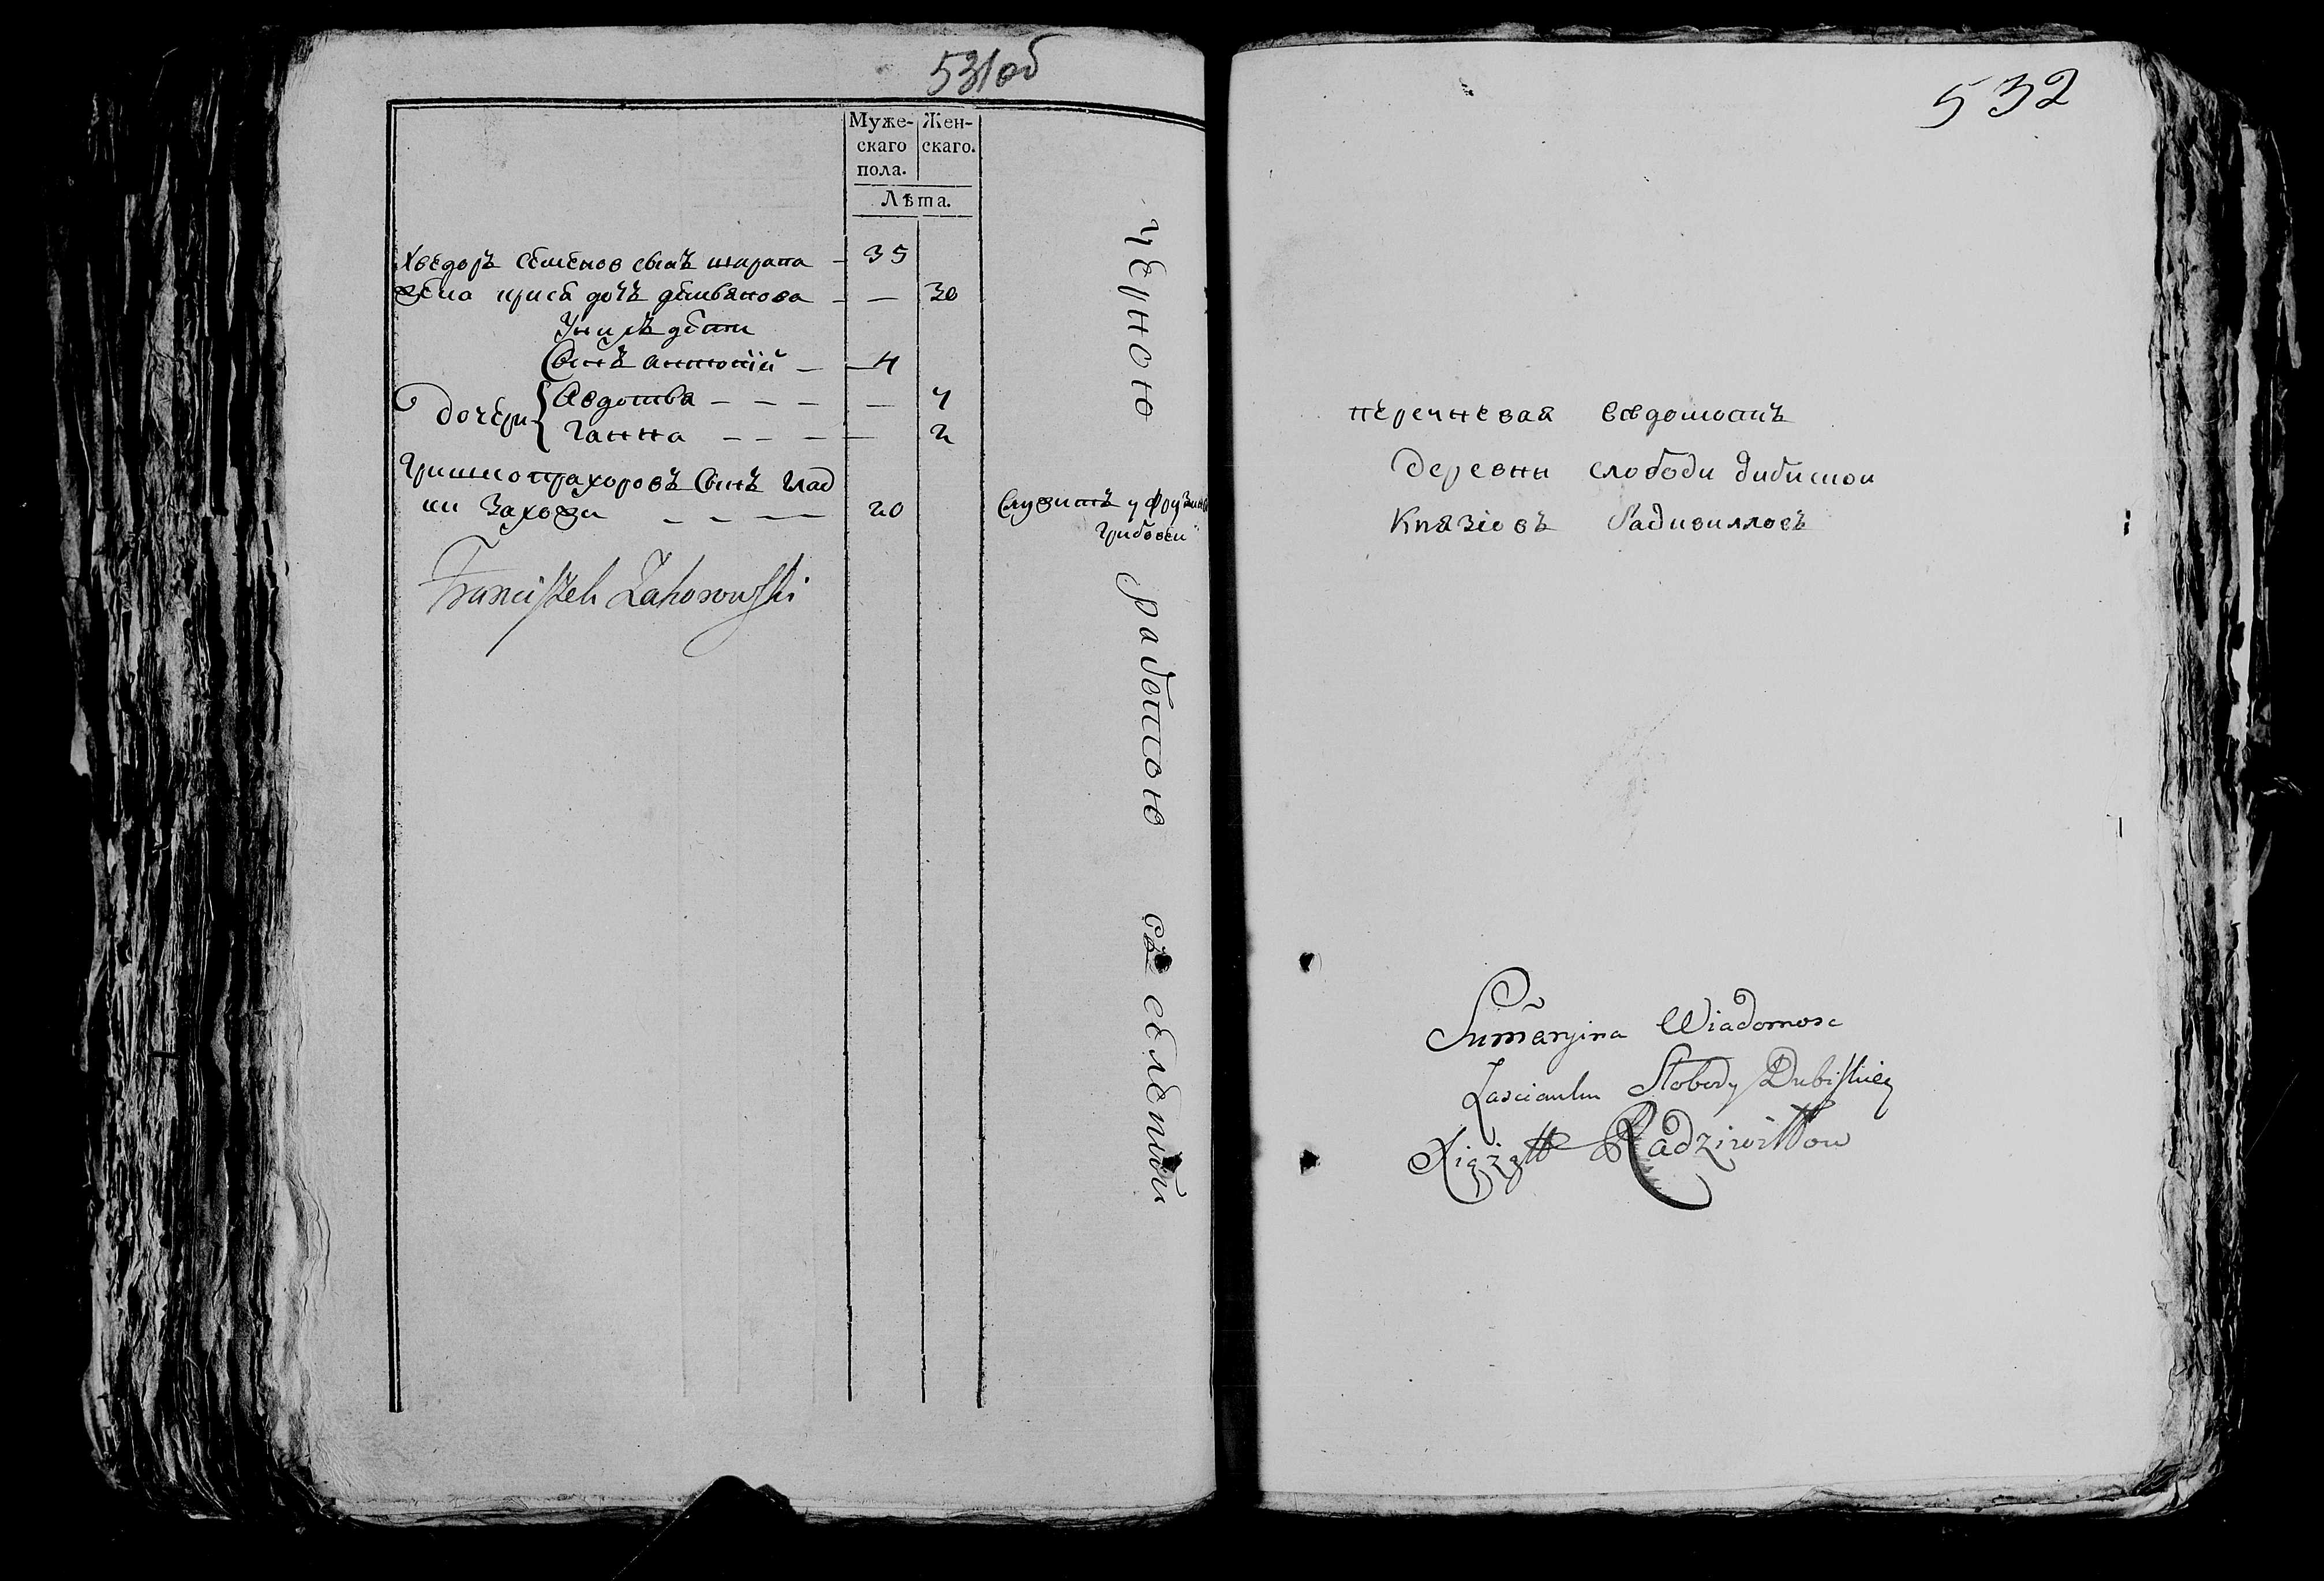 531об
Муже-
скаго
пола.
Жен-
скаго.
Лѣта.
Хведоръ семенов сынъ шкрапа – 35
жена прися дочъ демьянова – – 30
У нихъ дѣти
Сынъ антоній – – 4
дочери { Авдотья – – – – 4
Ганна – – – – 2
Гришко прахоровъ Сынъ глад
ки Захожи – – – 20
Служитъ у Фрузины
Грибовки
Franciszek Zahorowski
чѣрною работою
532
перечневая ведомость
деревни слободи дибиской
Князіовъ Радивилловъ
Sumaryina Wiadomosc
Zascianku Słobody Dubiskiey
Xiążąt Radziwiłłow